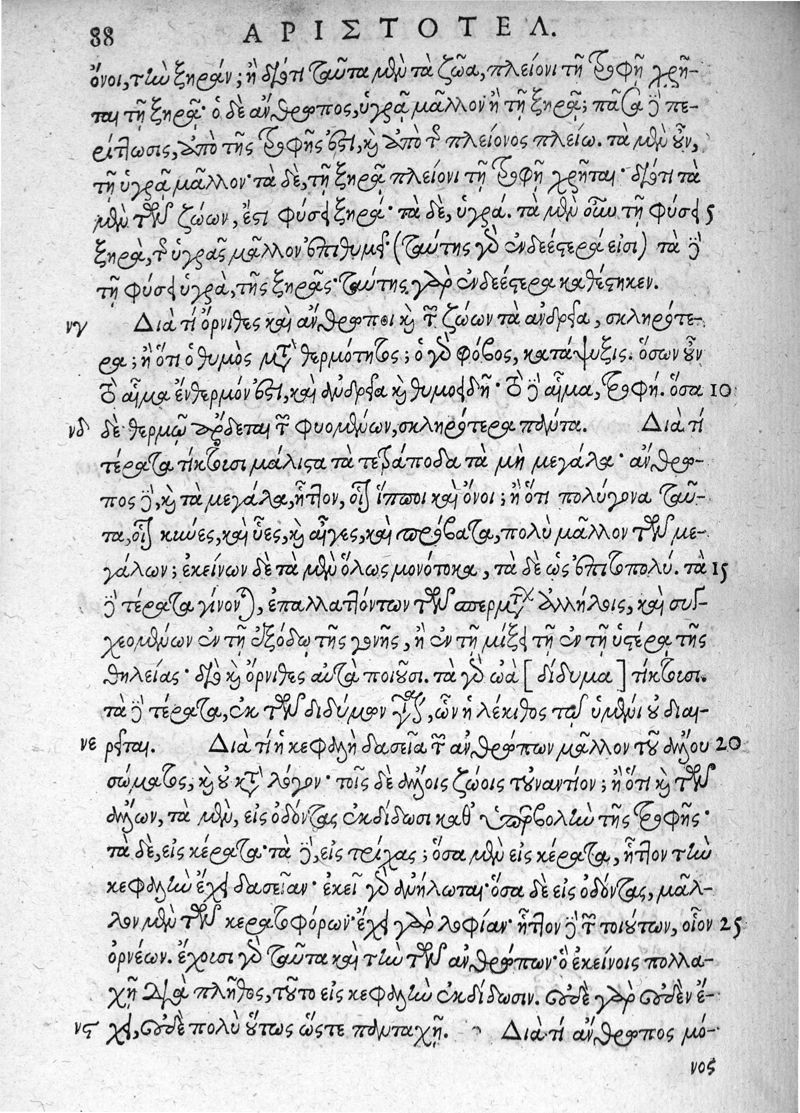 88 ΑΡΙΣΤΟΤΕΛ.
ὄνοι, τὴν ξηράν; ἢ διότι ταῦτα μὲν τὰ ζῶα, πλείονι τῇ τροφῇ χρῆ-
ται τῇ ξηρᾷ· ὁ δὲ ἄνθρωπος, ὑγρᾷ μᾶλλον ἢ τῇ ξηρᾷ; πᾶσα δὲ πε-
ρίττωσις, ἀπὸ τῆς τροφῆς ἐστι, καὶ ἀπὸ τῆς πλείονος πλείω. τὰ μὲν οὖν,
τῇ ὑγρᾷ μᾶλλον· τὰ δὲ, τῇ ξηρᾷ πλείονι τῇ τροφῇ χρῆται· διότι τὰ
μὲν τῶν ζώων, ἔστι φύσει ξηρά· τὰ δὲ, ὑγρά. τὰ μὲν οὖν τῇ φύσει 5
ξηρὰ, τῆς ὑγρᾶς μᾶλλον ἐπιθυμεῖ· (ταύτης γὰρ ἐνδεέστερά εἰσι) τὰ δὲ
τῇ φύσει ὑγρὰ, τῆς ξηρᾶς· ταύτης γὰρ ἐνδεέστερα καθέστηκεν.
νγ Διὰ τί ὄρνιθες καὶ ἄνθρωποι καὶ τῶν ζώων τὰ ἀνδρεῖα, σκληρότε-
ρα; ἢ ὅτι ὁ θυμὸς μετὰ θερμότητος; ὁ γὰρ φόβος, κατάψυξις. ὅσων οὖν
τὸ αἷμα ἔνθερμόν ἐστι, καὶ ἀνδρεῖα καὶ θυμοειδῆ· τὸ δὲ αἷμα, τροφή. ὅσα 10
νδ δὲ θερμῷ ἄρδεται τῶν φυομένων, σκληρότερα πάντα. Διὰ τί
τέρατα τίκτουσι μάλιστα τὰ τετράποδα τὰ μὴ μεγάλα· ἄνθρω-
πος δὲ, καὶ τὰ μεγάλα, ἧττον, οἷον ἵπποι καὶ ὄνοι; ἢ ὅτι πολύγονα ταῦ-
τα, οἷον κύνες, καὶ ὗες, καὶ αἶγες, καὶ πρόβατα, πολὺ μᾶλλον τῶν με-
γάλων; ἐκείνων δὲ τὰ μὲν ὅλως μονότοκα, τὰ δὲ ὡς ἐπιτοπολύ. τὰ 15
δὲ τέρατα γίνονται, ἐπαλλαττόντων τῶν σπερμάτων ἀλλήλοις, καὶ συγ-
χεομένων ἐν τῇ ἐξόδῳ τῆς γονῆς, ἢ ἐν τῇ μίξει τῇ ἐν τῇ ὑστέρᾳ τῆς
θηλείας· διὸ καὶ ὄρνιθες αὐτὰ ποιοῦσι. τὰ γὰρ ὠὰ [δίδυμα] τίκτουσι.
τὰ δὲ τέρατα, ἐκ τῶν διδύμων γίνεται, ὧν ἡ λέκιθος τῷ ὑμένι οὐ διαι-
νε ρεῖται. Διὰ τί ἡ κεφαλὴ δασεῖα τῶν ἀνθρώπων μᾶλλον τοῦ ἄλλου 20
σώματος, καὶ οὐ κατὰ λόγον· τοῖς δὲ ἄλλοις ζώοις τοὐναντίον; ἢ ὅτι καὶ τῶν
ἄλλων, τὰ μὲν, εἰς ὀδόντας ἐκδίδωσι καθ' ὑπερβολὴν τῆς τροφῆς·
τὰ δὲ, εἰς κέρατα· τὰ δὲ, εἰς τρίχας; ὅσα μὲν εἰς κέρατα, ἧττον τὴν
κεφαλὴν ἔχει δασεῖαν· ἐκεῖ γὰρ ἀνήλωται· ὅσα δὲ εἰς ὀδόντας, μᾶλ-
λον μὲν τῶν κερατοφόρων· ἔχει γὰρ λοφίαν· ἧττον δὲ τῶν τοιούτων, οἷον 25
ὀρνέων. ἔχουσι γὰρ ταῦτα καὶ τὴν τῶν ἀνθρώπων· ὃ ἐκείνοις πολλα-
χῇ διὰ πλῆθος, τοῦτο εἰς κεφαλὴν ἐκδίδωσιν. οὐδὲ γὰρ οὐδὲν ἔ-
νς χει, οὐδὲ πολὺ οὕτως ὥστε πανταχῇ. Διὰ τί ἄνθρωπος μό-
νος